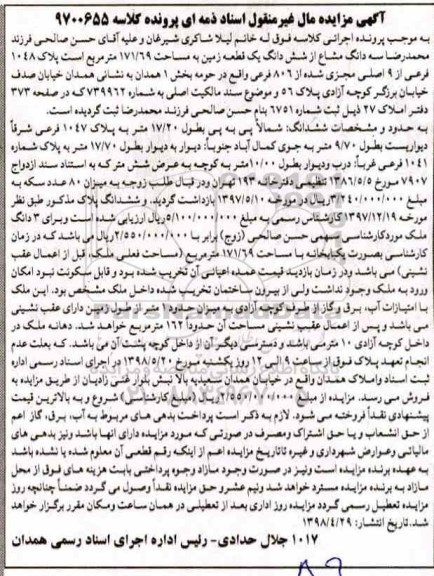 آگهی مزایده مال غیرمنقول اسناد ذمه ای پرونده کلاسه ۹۷۰۰۶۵۵
به موجب پرونده اجرائی کلاسه فوق له خانم لیلا شاکری شیرغان و علیه آقای حسن صالحی فرزند
محمدرضا سه دانگ مشاع از شش دانگ یک قطعه زمین به مساحت ۱۷۱/۶۹ مترمربع است پلاک ۱۰۴۸
فرعی از ۹ اصلی مجزی شده از ۸۰۶ فرعی واقع در حومه بخش ۱ همدان به نشانی همدان خیابان صدف
خیابان برزگر کوچه آزادی پلاک ۵۶ و موضوع سند مالکیت اصلی به شماره ۷۳۹۹۶۲که در صفحه ۳۷۳
دفتر املاک ۲۷ ذیل ثبت شماره ۶۷۵۱ بنام حسن صالحی فرزند محمدرضا ثبت گردیده است.
به حدود و مشخصات ششدانگ: شمالاً پی به پی بطول ۱۷/۲۰ متر به پلاک ۱۰۴۷ فرعی شرقاً
دیواریست بطول ۹/۷۰ متر به جوی کمال آباد جنوباً: دیوار به دیوار بطول ۱۷/۷۰ متر به پلاک شماره
۱۰۴۱ فرعی غرباً: درب ودیوار بطول ۱۰/۰۰متر به کوچه به عرض شش متر که به استناد سند ازدواج
۷۹۰۷ مورخ ۱۳۸۶/۵/۵ تنظیمی دفترخانه ۱۹۳ تهران ودر قبال طلب زوجه به میزان ۸۰ عدد سکه به
مبلغ ۳/۲۴۰/۰۰۰/۰۰۰ریال در مورخه ۱۳۹۷/۵/۱۰ بازداشت گردید. و ششدانگ پلاک مذکور طبق نظر
مورخه ۱۳۹۷/۱۲/۱۹ کارشناس رسمی به مبلغ ۵/۱۰۰/۰۰۰/۰۰۰ریال ارزیابی شده است وبرای ۳ دانگ
ملک موردکارشناسی سهمی حسن صالحی (زوج) برابر با ۲/۵۵۰/۰۰۰/۰۰۰ریال می باشد که در زمان
کارشناسی بصورت یکبابخانه با مساحت ۱۷۱/۶۹ مترمربع (مساحت فعلی ملک، قبل از اعمال عقب
نشینی) می باشد ودر زمان بازدید قیمت عمده اعیانی آن تخریب شده بود و قابل سکونت نبود امکان
ورود به ملک وجود نداشت ولی از بیرون ساختمان تخریب شده داخل ملک مشخص بود. این ملک
با امتیازات آب، برق و گاز از طرف کوچه آزادی به میزان حدود۱ متر از طول زمین دارای عقب نشینی
می باشد و پس از اعمال عقب نشینی مساحت آن حدوداً ۱۶۲ مترمربع خواهد شد. دهانه ملک در
داخل کوچه آزادی ۱۰ متر می باشد و دسترسی دیگر آن از داخل کوچه پشت آن می باشد. که بعلت عدم
انجام تعهد پلاک فوق از ساعت ۹ الی ۱۲ روز یکشنبه مورخ ۱۳۹۸/۵/۲۰ در اجرای اسناد رسمی اداره
ثبت اسناد واملاک همدان واقع در خیابان همدان سعیدیه بالا نبش بلوار غنی زادیان از طریق مزایده به
فروش می رسد. مزایده از مبلغ ۲/۵۵۰/۰۰۰/۰۰۰ریال (مبلغ کارشناسی) شروع و به بالاترین قیمت
پیشنهادی نقداً فروخته می شود. لازم به ذکر است پرداخت بدهی های مربوط به آب، برق، گاز اعم
از حق انشعاب و یا حق اشتراک ومصرف در صورتی که مورد مزایده دارای آنها باشد ونیز بدهی های
مالیاتی وعوارض شهرداری و غیره تاتاریخ مزایده اعم از اینکه رقم قطعی آن معلوم شده یا نشده باشد
به عهده برنده مزایده است ونیز در صورت وجود مازاد وجوه پرداختی بابت هزینه های فوق از محل
مازاد به برنده مزایده مسترد خواهد شد ونیم عشر و حق مزایده نقداً وصول می گردد ضمناً چنانچه روز
مزایده تعطیل رسمی گردد مزایده روز اداری بعد از تعطیلی در همان ساعت ومکان مقرر برگزار خواهد
شد. تاریخ انتشار: ۱۳۹۸/۴/۲۹
۱۰۱۷ جلال حدادی- رئیس اداره اجرای اسناد رسمی همدان